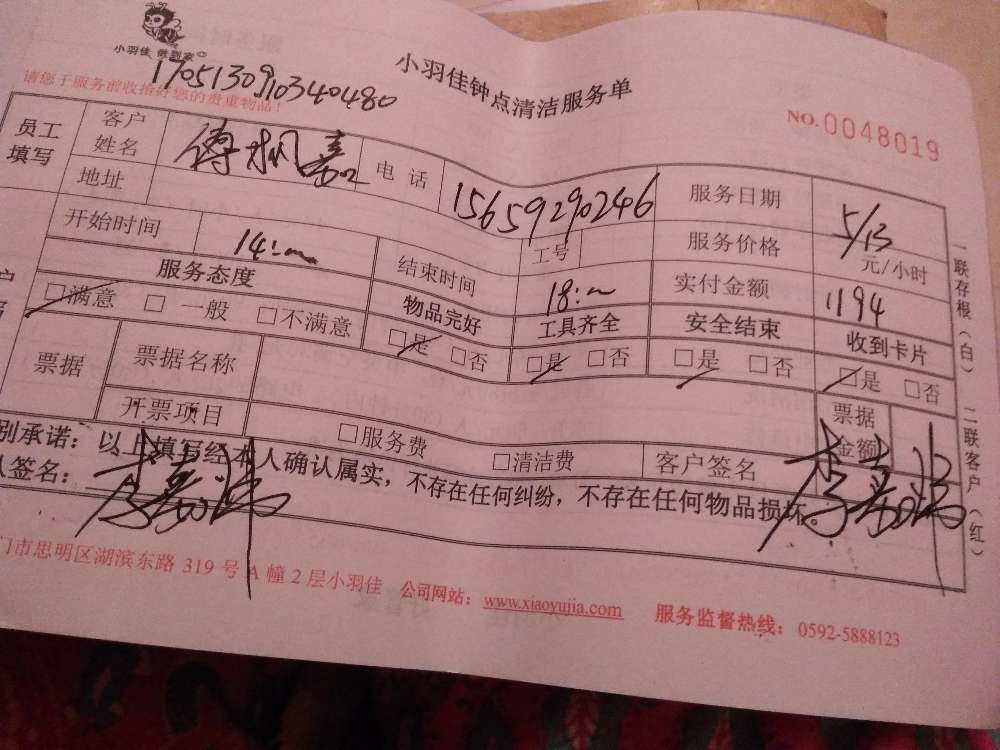 小羽佳 做到家
小羽佳钟点清洁服务单
请您于服务前收拾好您的贵重物品！
1705130910340480
NO.0048019
员工填写 客户姓名 电话 15659290246 服务日期 5/13
地址 工号 服务价格 元/小时
开始时间 14: 结束时间 18: 实付金额 1194
服务态度 物品完好 工具齐全 安全结束 收到卡片
□满意 □一般 □不满意 □是 □否 □是 □否 □是 □否 □是 □否
票据 票据名称 票据金额
开票项目 □服务费 □清洁费 客户签名
别承诺：以上填写经本人确认属实，不存在任何纠纷，不存在任何物品损坏。
人签名：
门市思明区湖滨东路 319 号 A 幢 2 层小羽佳 公司网站：www.xiaoyujia.com 服务监督热线：0592-5888123
一联存根（白） 二联客户（红）